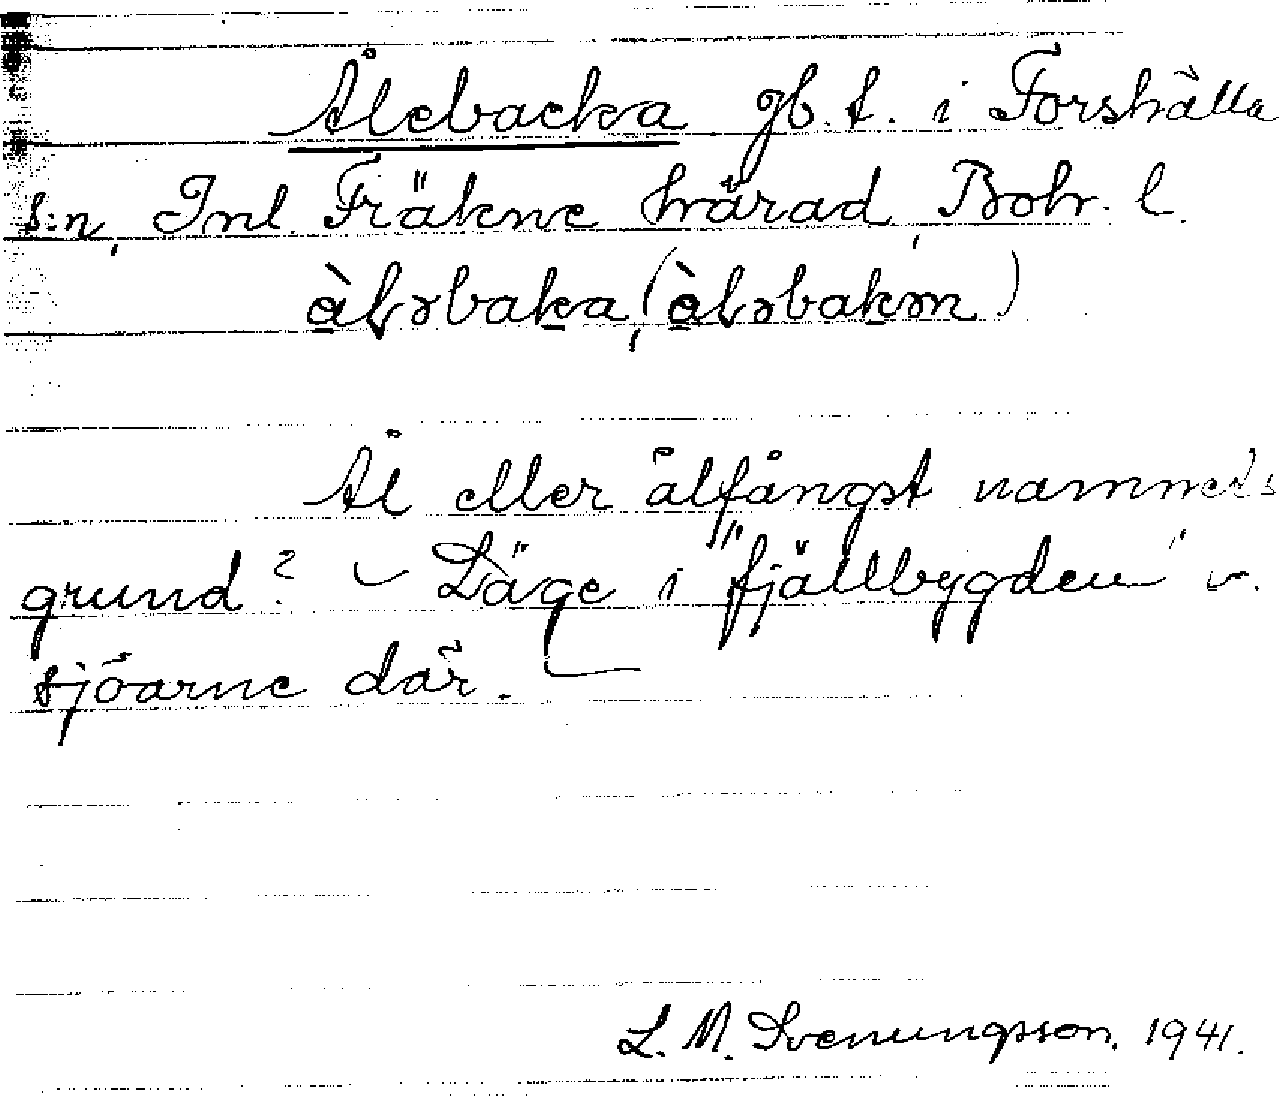 Ålebacka gb. t. i Forshälla
s:n, Inl. Fräkne härad, Boh. l.
àlɘbaka, (àlɘbakɘn)
Ål eller ålfångst namnets
grund? – Läge i "fjällbygden" v.
sjöarne där. –
L. M. Svenungsson. 1941.